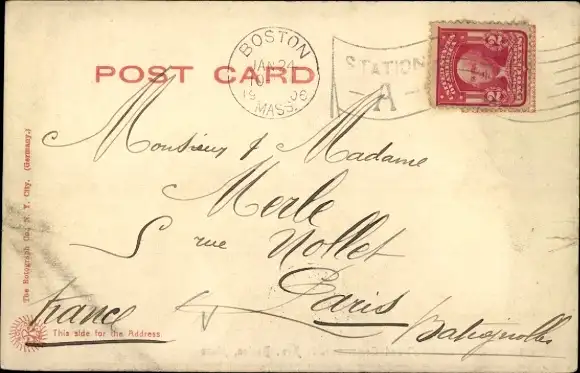 BOSTON
JAN 24
1906
MASS.
STATION
A
POST CARD
Monsieur & Madame
Merle
5 rue Nollet
Paris
Batignolles
France
This side for the Address
The Rotograph Co., N. Y. City. (Germany.)